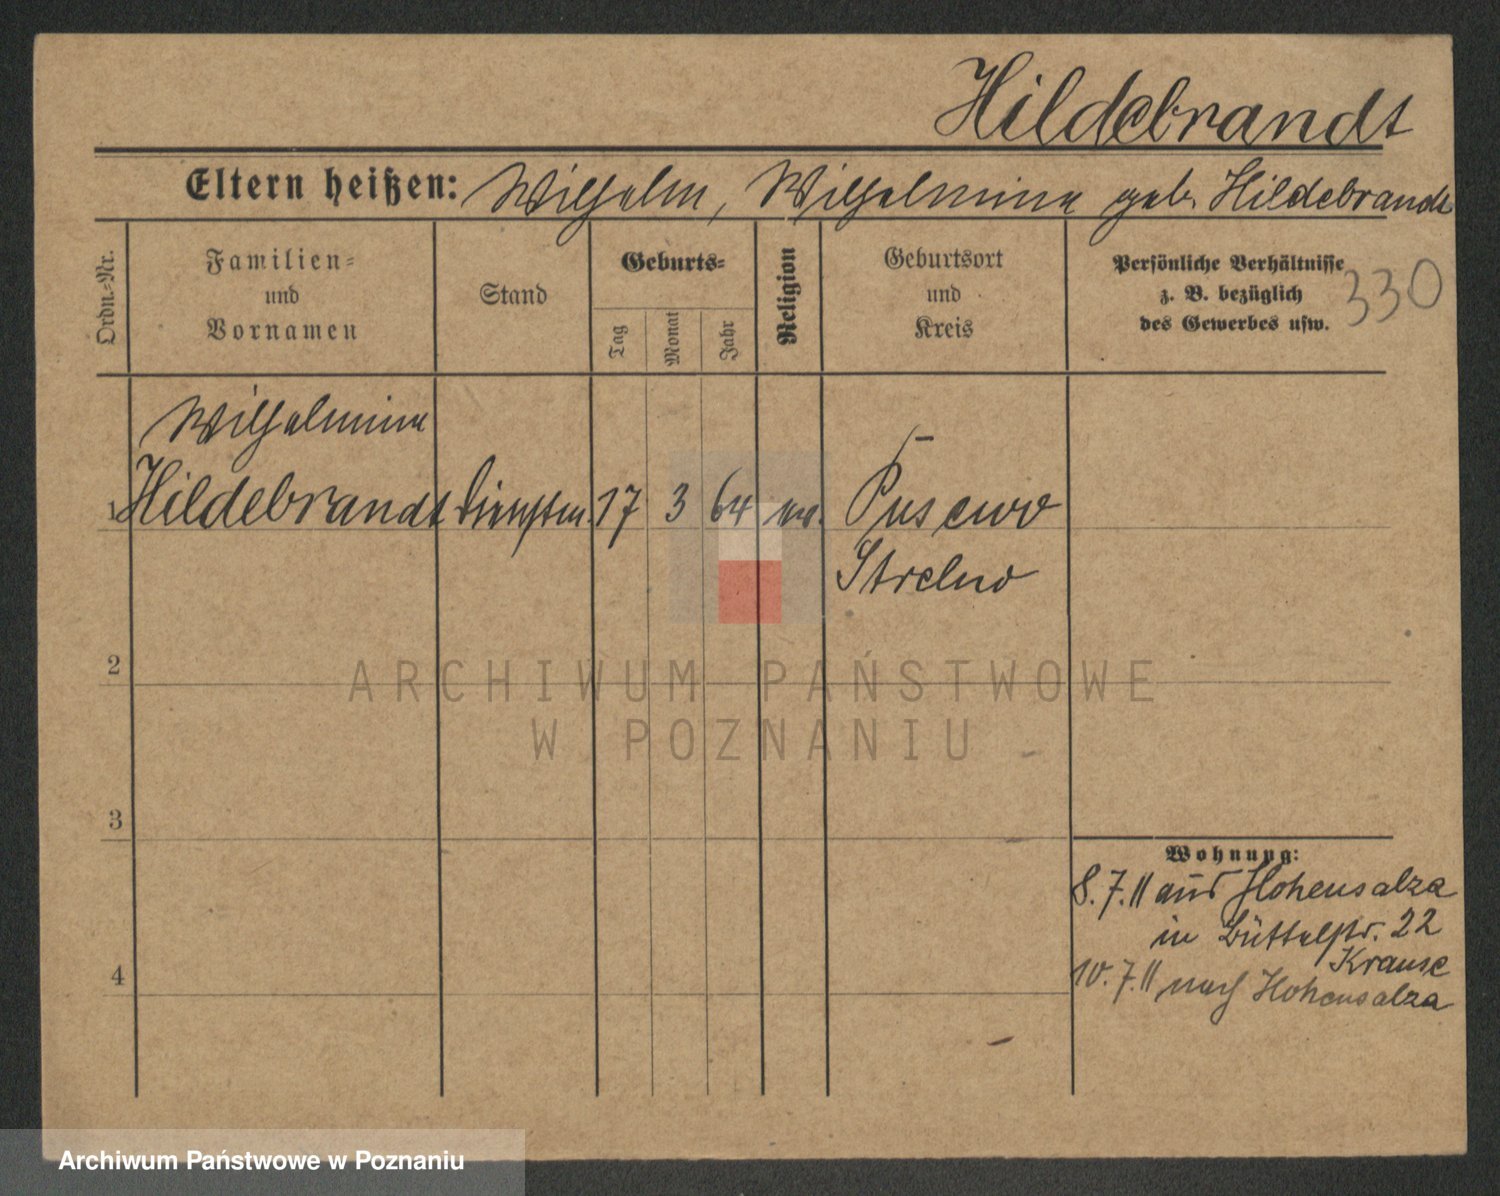 Hildebrandt
Eltern heißen: Wilhelm, Wilhelmine geb. Hildebrandt
Ordn.=Nr.
Familien=
und
Vornamen
Stand
Geburts=
Tag
Monat
Jahr
Religion
Geburtsort
und
Kreis
Persönliche Verhältnisse
z. B. bezüglich
des Gewerbes usw.
330
Wilhelmine
1 Hildebrandt Dienstm. 17 3 64 ev. Pusewo
Strelno
2
3
4
Wohnung:
8.7.11 aus Hohensalza
in Büttelstr. 22
Krause
10.7.11 nach Hohensalza
ARCHIWUM PAŃSTWOWE
W POZNANIU
Archiwum Państwowe w Poznaniu